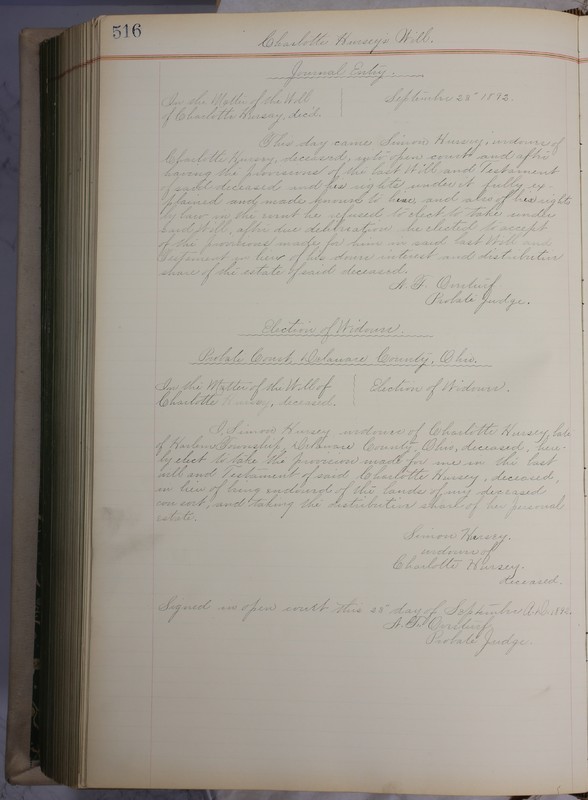 516
Charlotte Hursey's Will.
Journal Entry.
In the Matter of the Will
of Charlotte Hursey, dec'd.
September 28" 1892.
This day came Simon Hursey, widower of
Charlotte Hursey, deceased, into open court and after
having the provisions of the last Will and Testament
of said deceased and his rights under it fully ex-
plained and made known to him, and also of his rights
by law in the event he refused to elect to take under
said Will, after due deliberation he elected to accept
of the provisions made for him in said last Will and
Testament in lieu of his dower interest and distributive
share of the estate of said deceased.
Probate Judge.
Election of Widower.
Probate Court, Delaware County, Ohio.
In the Matter of the Will of
Charlotte Hursey, deceased.
Election of Widower.
I, Simon Hursey widower of Charlotte Hursey, late
of Harlem Township, Delaware County, Ohio, deceased, here-
by elect to take the provision made for me in the last
will and Testament of said Charlotte Hursey, deceased,
in lieu of being endowed of the lands of my deceased
consort, and taking the distributive share of her personal
estate.
Simon Hursey.
widower of
Charlotte Hursey.
deceased.
Signed in open court this 28" day of September A.D. 1892.
Probate Judge.